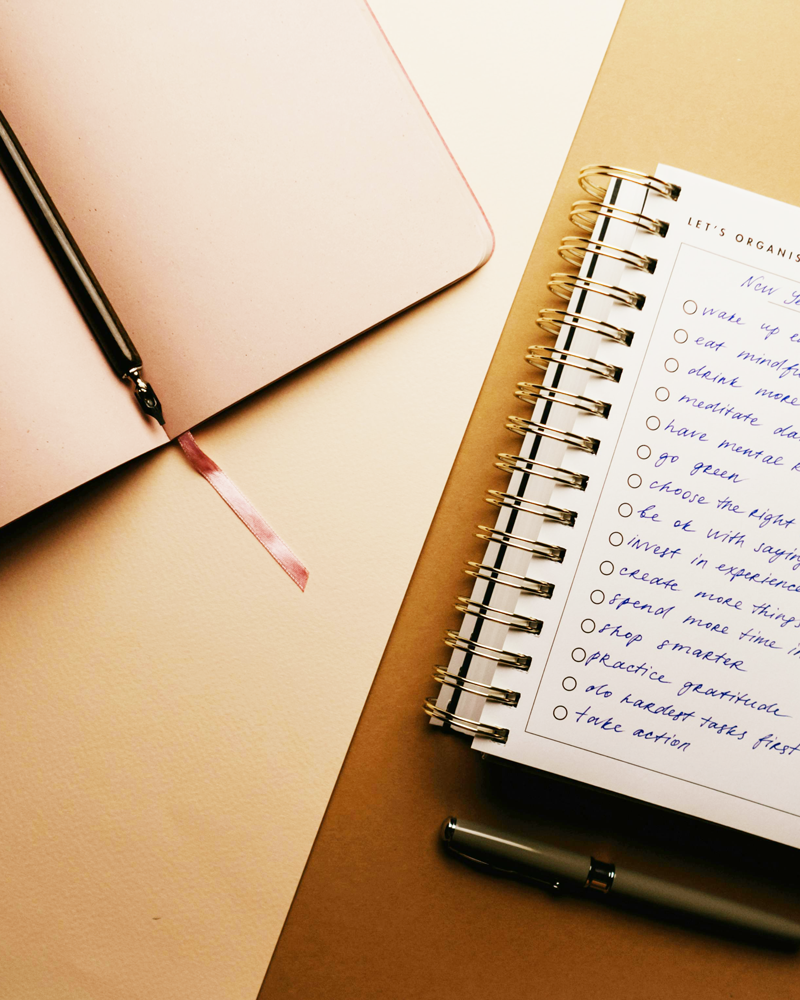 LET'S ORGANIS
New Ye
wake up ea
eat mindfu
drink more
meditate da
have mental
go green
choose the right
be ok with saying
invest in experience
create more things
spend more time in
shop smarter
practice gratitude
do hardest tasks first
take action